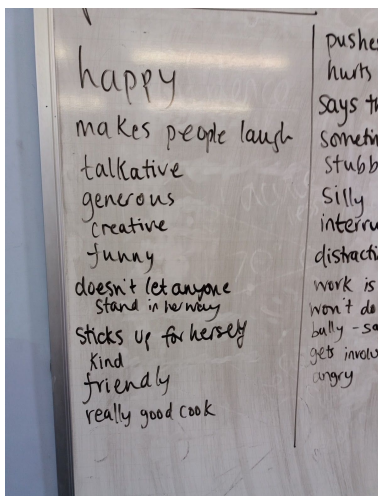 happy
makes people laugh
talkative
generous
creative
funny
doesn't let anyone
stand in her way
sticks up for herself
kind
friendly
really good cook
pushes
hurts
says
stubb
silly
interru
distracti
work is
won't do
bully -
gets involv
angry